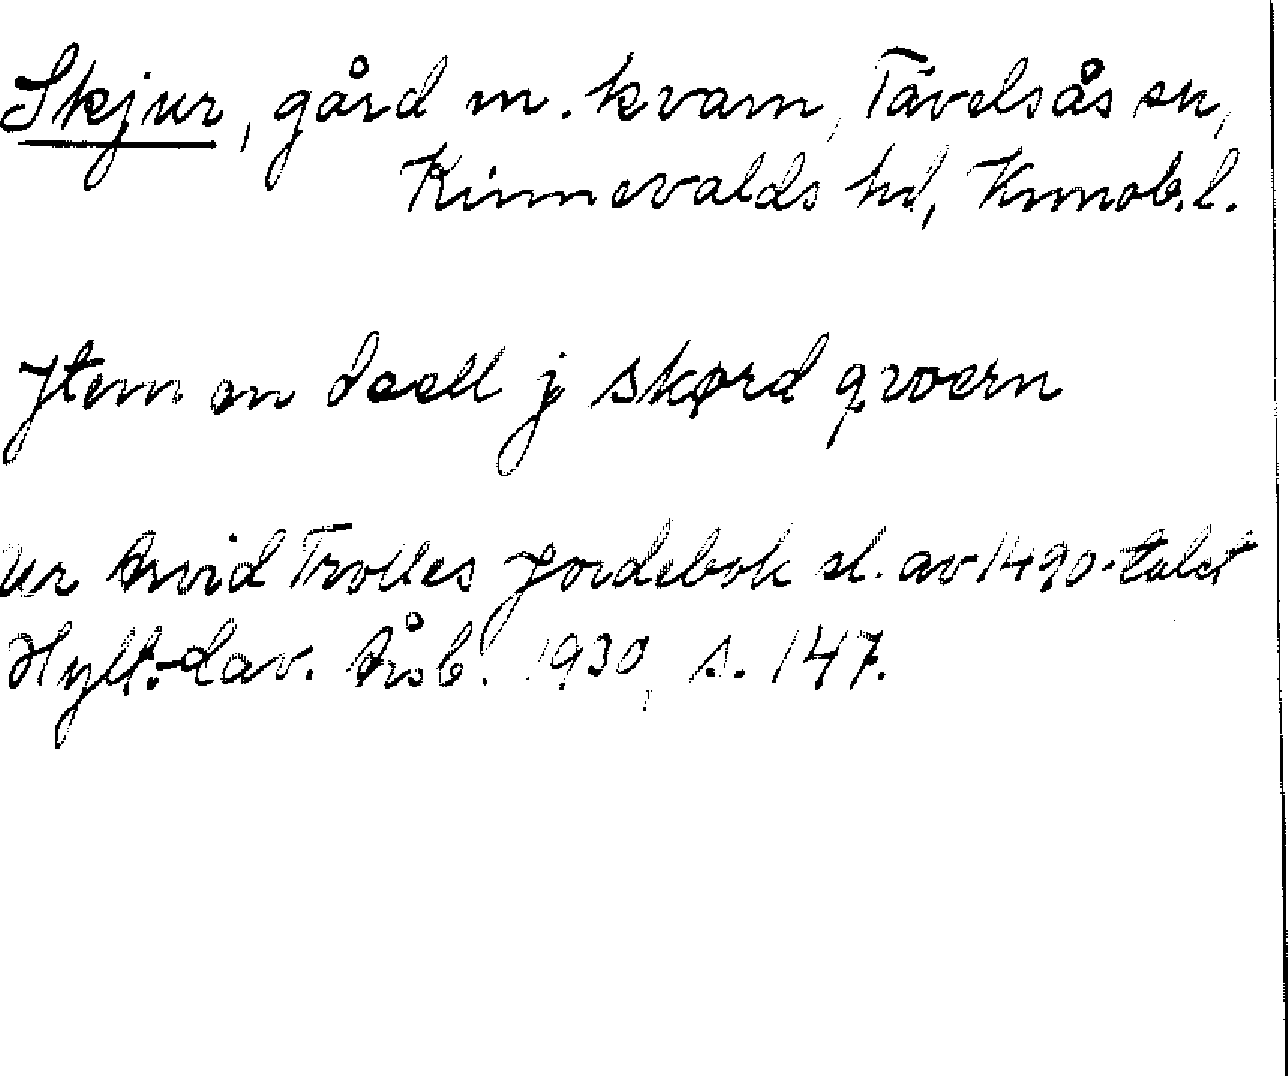 Skjur, gård m. kvarn, Tävelsås sn,
Kinnevalds hd, Kronob. l.
Jtem en deell j skørd qwern
ur Arvid Trolles Jordebok sl. av 1490-talet
Hylt.-Cav. Årsb. 1930, s. 147.